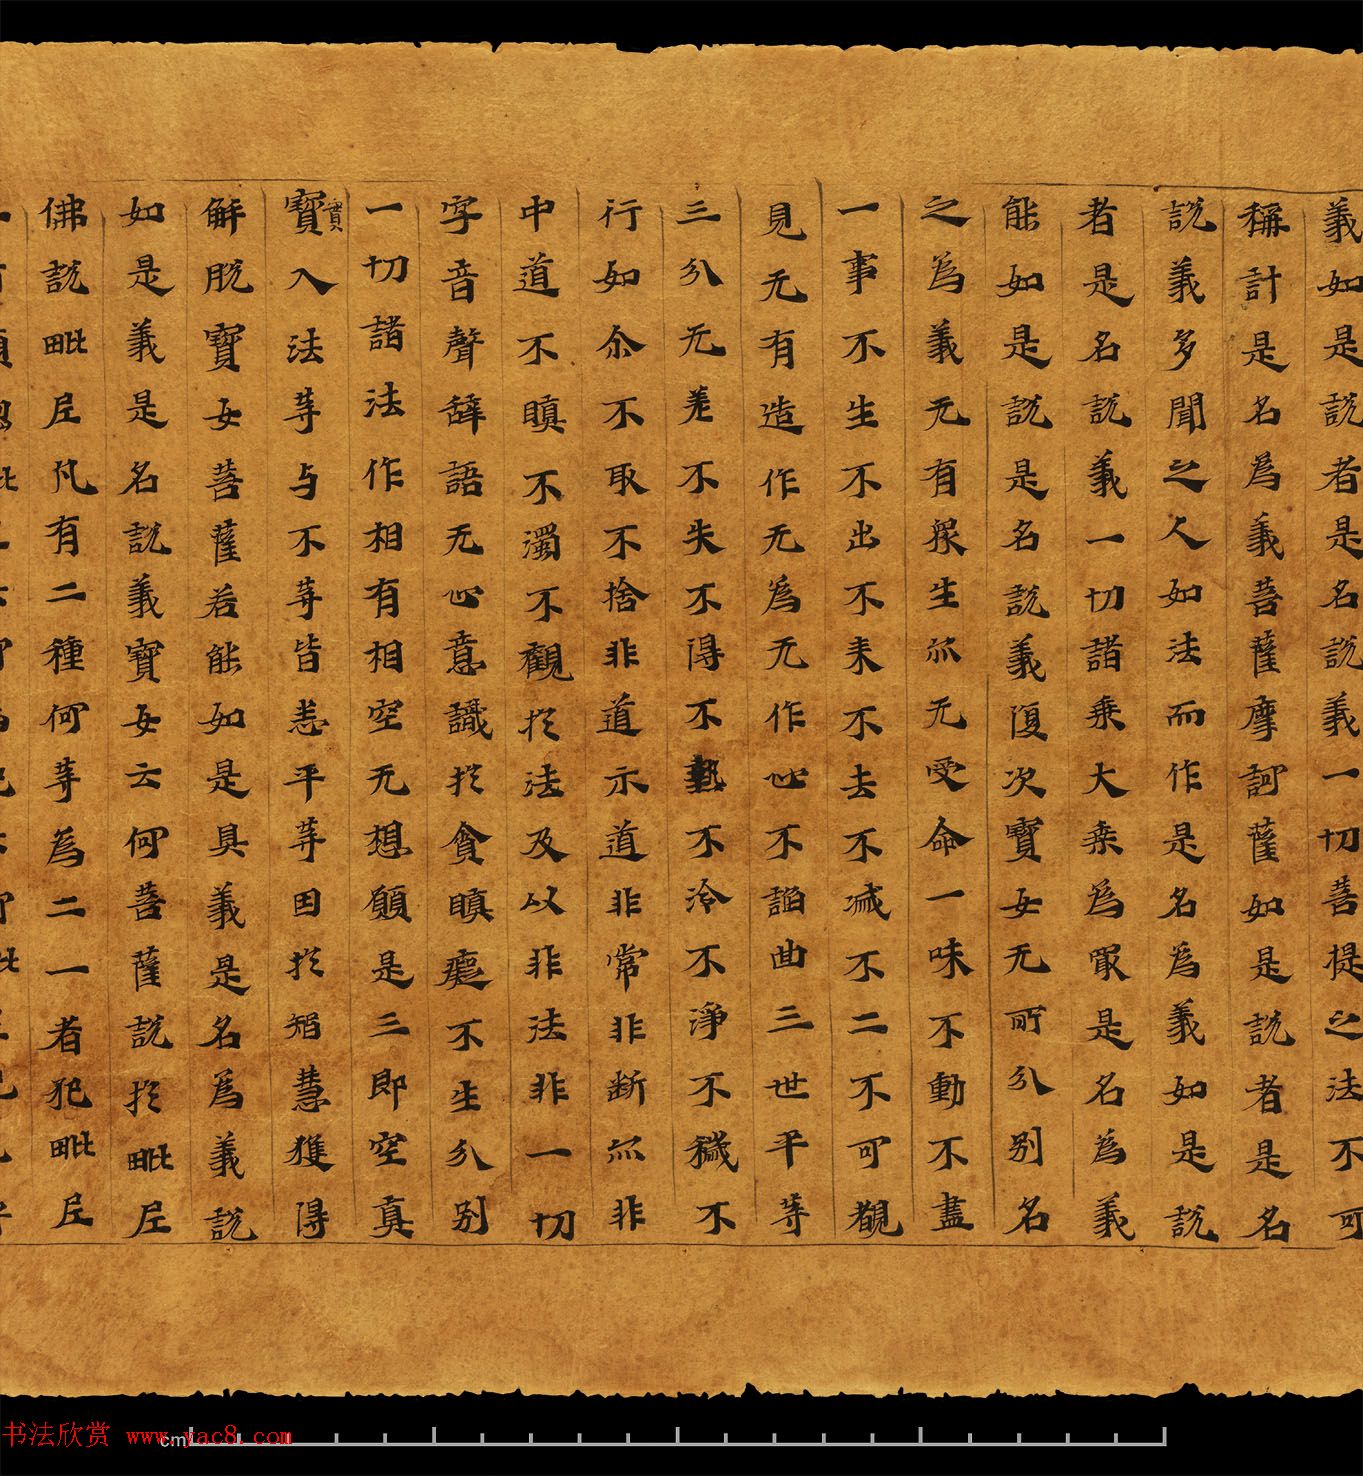 義如是説者是名説義一切菩提之法不可
稱計是名為義菩薩摩訶薩如是説者是名
説義多聞之人如法而作是名為義如是説
者是名説義一切諸乗大乗為冣是名為義
能如是説是名説義復次寶女无所分别名
之為義无有衆生亦无受命一味不動不盡
一事不生不出不来不去不减不二不可覩
見无有造作无為无作心不謟曲三世平等
三分无差不失不得不熱不冷不淨不穢不
行如尒不取不捨非道示道非常非断亦非
中道不瞋不濁不觀扵法及以非法非一切
字音聲辞語无心意識扵貪瞋癡不生分别
一切諸法作相有相空无想願是三即空真
寶實入法等与不等皆悉平等因扵智慧獲得
解脱寶女菩薩若能如是具義是名為義説
如是義是名説義寶女云何菩薩説扵毗尼
佛説毗尼凡有二種何等為二一者犯毗尼
cm
书法欣赏 www.yac8.com